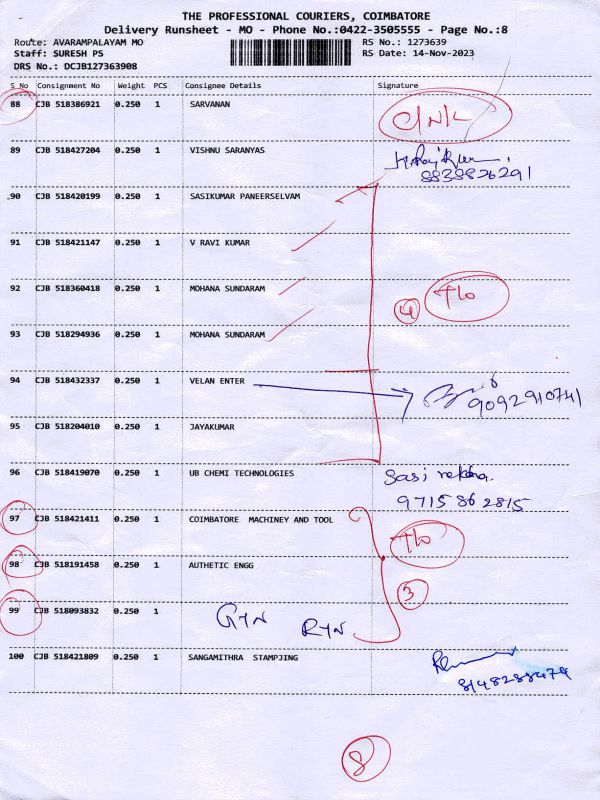 THE PROFESSIONAL COURIERS, COIMBATORE
Delivery Runsheet - MO - Phone No.:0422-3505555 - Page No.:8
Route: AVARAMPALAYAM MO RS No.: 1273639
Staff: SURESH PS RS Date: 14-Nov-2023
DRS No.: DCJB127363908
S No Consignment No Weight PCS Consignee Details Signature
88 CJB 518386921 0.250 1 SARVANAN
C/N/L
89 CJB 518427204 0.250 1 VISHNU SARANYAS
8838826291
90 CJB 518420199 0.250 1 SASIKUMAR PANEERSELVAM
91 CJB 518421147 0.250 1 V RAVI KUMAR
92 CJB 518360418 0.250 1 MOHANA SUNDARAM
4 T/O
93 CJB 518294936 0.250 1 MOHANA SUNDARAM
94 CJB 518432337 0.250 1 VELAN ENTER
9092910741
95 CJB 518204010 0.250 1 JAYAKUMAR
96 CJB 518419070 0.250 1 UB CHEMI TECHNOLOGIES Sasi rekha.
9715862815
97 CJB 518421411 0.250 1 COIMBATORE MACHINEY AND TOOL
T/O
98 CJB 518191458 0.250 1 AUTHETIC ENGG
3
99 CJB 518093832 0.250 1
RTN
100 CJB 518421809 0.250 1 SANGAMITHRA STAMPJING
8148288479
8